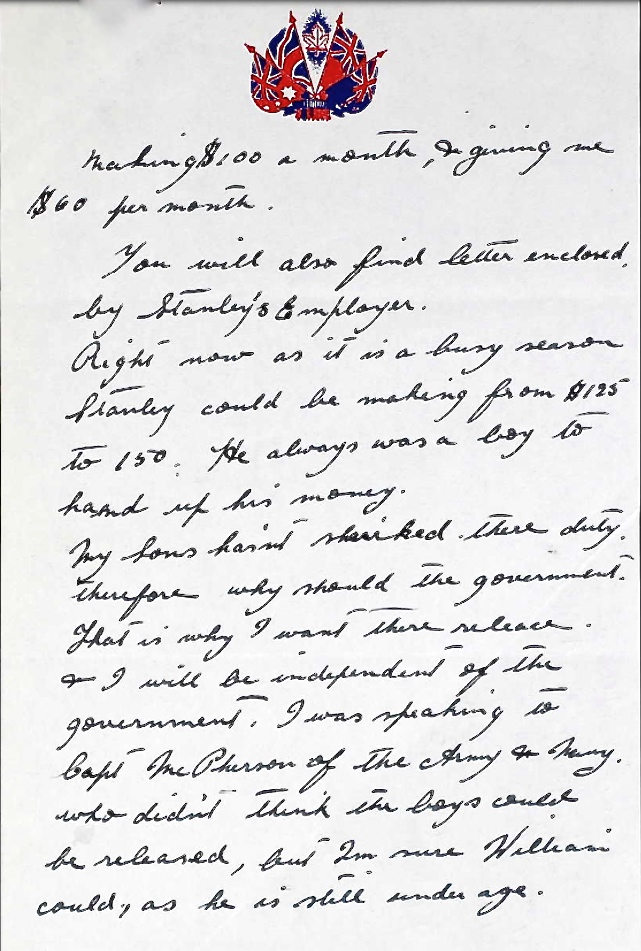 making $100 a month, & giving me
$60 per month.
You will also find letter enclosed,
by Stanley's Employer.
Right now as it is a busy season
Stanley could be making from $125
to 150. He always was a boy to
hand up his money.
My sons hasn't shirked there duty,
therefore why should the government.
That is why I want there releace.
& I will be independent of the
government. I was speaking to
Capt McPherson of the Army & Navy.
who didn't think the boys could
be released, but I'm sure William
could, as he is still under age.